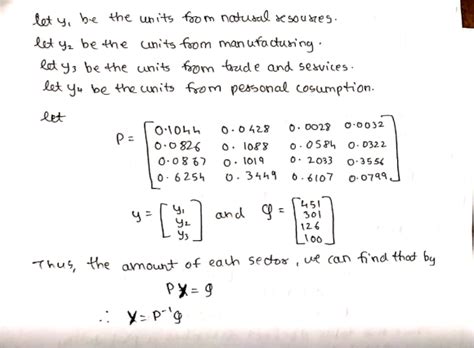 let y₁ be the units from natural resourses.
let y₂ be the units from manufacturing.
let y₃ be the units from trade and services.
let y₄ be the units from personal cosumption.
let
P = [0.1044 0.0428 0.0028 0.0032
0.0826 0.1088 0.0584 0.0322
0.0867 0.1019 0.2033 0.3556
0.6254 0.3449 0.6107 0.0799]
y = [y₁ y₂ y₃] and g = [451 301 126 100]
Thus, the amount of each sector, we can find that by
PY = g
∴ Y = P⁻¹g